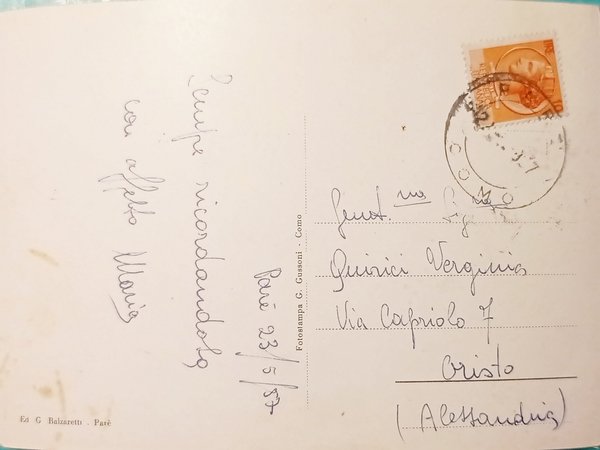 Sempre ricordandola
con affetto Maria
Parè 23/5/57
Ed G Balzaretti - Parè
Fotostampa G. Gussoni - Como
Gent.ma Sig.na
Quirici Verginia
Via Capriolo 7
Cristo
(Alessandria)
COMO